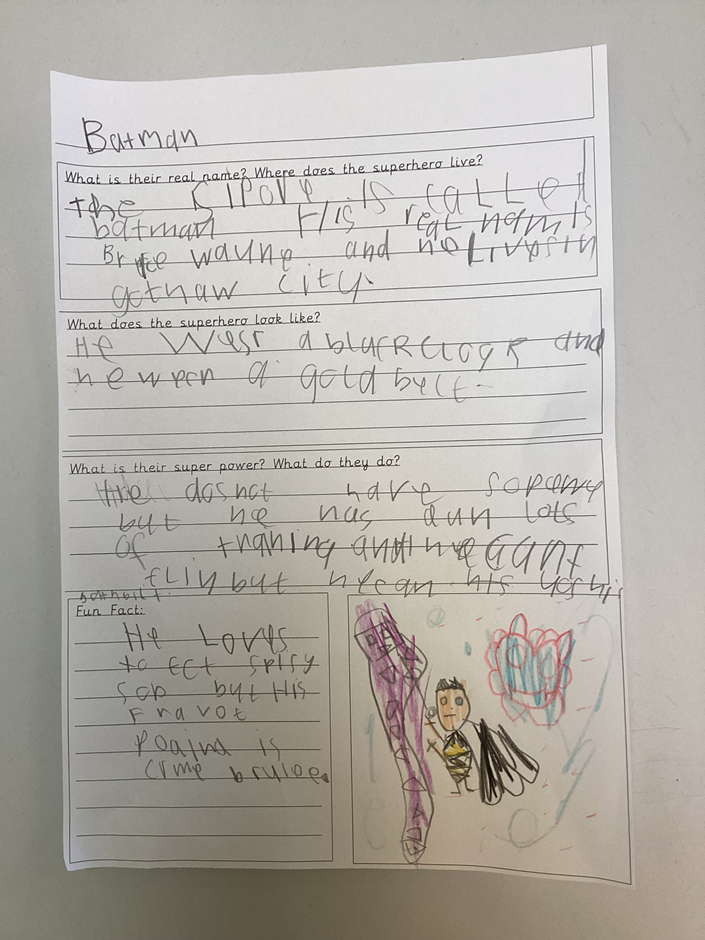 Batman
What is their real name? Where does the superhero live?
the is called
batman His real nam is
Bruce wayne and he Lives in
gothaw city.
What does the superhero look like?
He Wesr a black cloak and
he a gold belt.
What is their super power? What do they do?
dosnot have
but he has dun lots
of traning and he cant
fliy but he can
Fun Fact:
He Loves
to ect spisy
sop but His
Fravot
is
crme brulee.